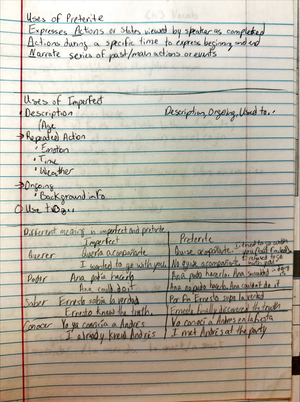 Uses of Preterite
Expresses Actions or States viewed by speaker as completed
Actions during a specific time to express beginning and end
Narrate series of past/main actions or events
Uses of Imperfect
Description
Description, Ongoing, Used to..
(Age
→ Repeated Action
• Emotion
• Time
• Weather
→ Ongoing
• Background info
Use to
Different meaning in imperfect and preterite
Imperfect Preterite
Querer Quería acompañarte Quise acompañarte I tried to go with you
I wanted to go with you. No quise acompañarte
Poder Ana podía hacerlo Ana pudo hacerlo. Ana succeeded in
Ana could do it Ana no pudo hacerlo. Ana couldn't do it
Saber Ernesto sabía la verdad Por fin Ernesto supo la verdad
Ernesto knew the truth. Ernesto finally discovered the truth
Conocer Yo ya conocía a Andrés Yo conocí a Andrés en la fiesta
I already knew Andrés I met Andrés at the party